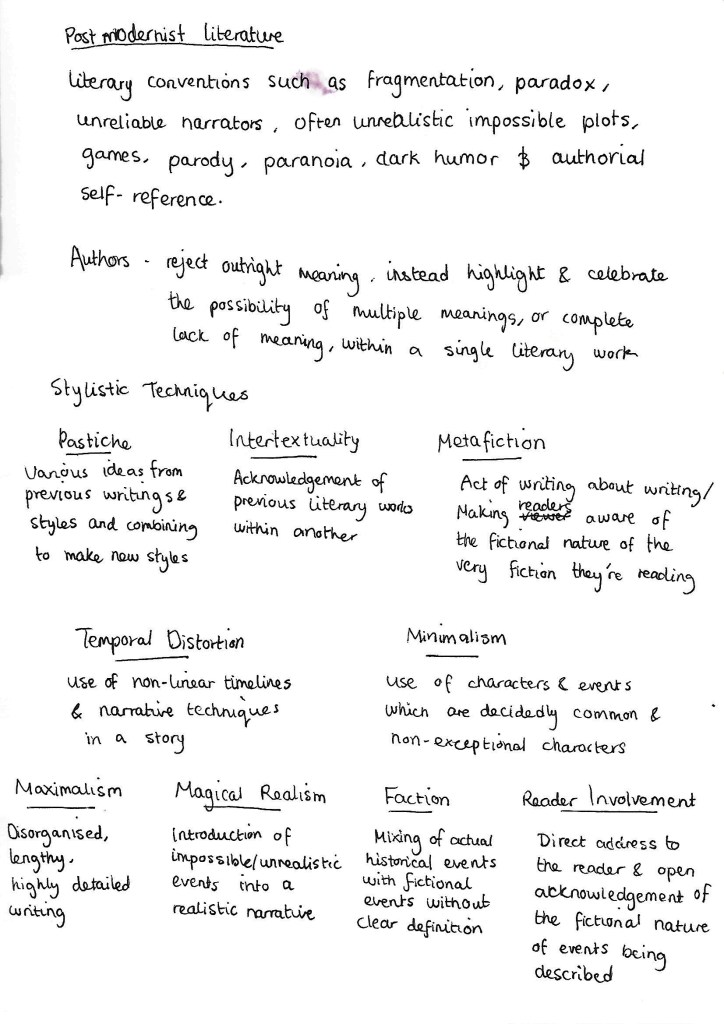 Post modernist literature
literary conventions such as fragmentation, paradox,
unreliable narrators, often unrealistic impossible plots,
games, parody, paranoia, dark humor & authorial
self-reference.
Authors - reject outright meaning, instead highlight & celebrate
the possibility of multiple meanings, or complete
lack of meaning, within a single literary work
Stylistic Techniques
Pastiche
Various ideas from
previous writings &
styles and combining
to make new styles
Intertextuality
Acknowledgement of
previous literary works
within another
Metafiction
Act of writing about writing/
Making readers aware of
the fictional nature of the
very fiction they're reading
Temporal Distortion
use of non-linear timelines
& narrative techniques
in a story
Minimalism
use of characters & events
which are decidedly common &
non-exceptional characters
Maximalism
Disorganised,
lengthy,
highly detailed
writing
Magical Realism
Introduction of
impossible/unrealistic
events into a
realistic narrative
Faction
Mixing of actual
historical events
with fictional
events without
clear definition
Reader Involvement
Direct address to
the reader & open
acknowledgement of
the fictional nature
of events being
described